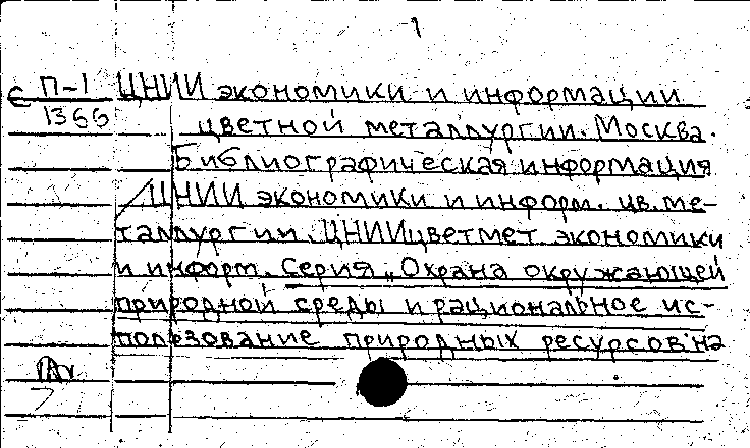 1
С П-1 ЦНИИ экономики и информации
1366 цветной металлургии. Москва.
Библиографическая информация
ЦНИИ экономики и информ. цв. ме-
таллургии, ЦНИИцветмет экономики
и информ. Серия „Охрана окружающей
природной среды и рациональное ис-
пользование природных ресурсов на